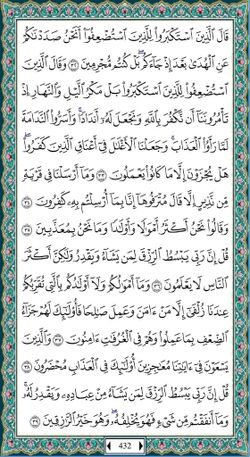 قَالَ الَّذِينَ اسْتَكْبَرُوا لِلَّذِينَ اسْتُضْعِفُوا أَنَحْنُ صَدَدْنَاكُمْ
عَنِ الْهُدَىٰ بَعْدَ إِذْ جَاءَكُم ۖ بَلْ كُنتُم مُّجْرِمِينَ ٣٢ وَقَالَ الَّذِينَ
اسْتُضْعِفُوا لِلَّذِينَ اسْتَكْبَرُوا بَلْ مَكْرُ اللَّيْلِ وَالنَّهَارِ إِذْ
تَأْمُرُونَنَا أَن نَّكْفُرَ بِاللَّهِ وَنَجْعَلَ لَهُ أَندَادًا ۚ وَأَسَرُّوا النَّدَامَةَ
لَمَّا رَأَوُا الْعَذَابَ ۚ وَجَعَلْنَا الْأَغْلَالَ فِي أَعْنَاقِ الَّذِينَ كَفَرُوا ۖ
هَلْ يُجْزَوْنَ إِلَّا مَا كَانُوا يَعْمَلُونَ ٣٣ وَمَا أَرْسَلْنَا فِي قَرْيَةٍ
مِّن نَّذِيرٍ إِلَّا قَالَ مُتْرَفُوهَا إِنَّا بِمَا أُرْسِلْتُم بِهِ كَافِرُونَ ٣٤
وَقَالُوا نَحْنُ أَكْثَرُ أَمْوَالًا وَأَوْلَادًا وَمَا نَحْنُ بِمُعَذَّبِينَ ٣٥
قُلْ إِنَّ رَبِّي يَبْسُطُ الرِّزْقَ لِمَن يَشَاءُ وَيَقْدِرُ وَلَٰكِنَّ أَكْثَرَ
النَّاسِ لَا يَعْلَمُونَ ٣٦ وَمَا أَمْوَالُكُمْ وَلَا أَوْلَادُكُم بِالَّتِي تُقَرِّبُكُمْ
عِندَنَا زُلْفَىٰ إِلَّا مَنْ آمَنَ وَعَمِلَ صَالِحًا فَأُولَٰئِكَ لَهُمْ جَزَاءُ
الضِّعْفِ بِمَا عَمِلُوا وَهُمْ فِي الْغُرُفَاتِ آمِنُونَ ٣٧ وَالَّذِينَ
يَسْعَوْنَ فِي آيَاتِنَا مُعَاجِزِينَ أُولَٰئِكَ فِي الْعَذَابِ مُحْضَرُونَ ٣٨
قُلْ إِنَّ رَبِّي يَبْسُطُ الرِّزْقَ لِمَن يَشَاءُ مِنْ عِبَادِهِ وَيَقْدِرُ لَهُ ۚ
وَمَا أَنفَقْتُم مِّن شَيْءٍ فَهُوَ يُخْلِفُهُ ۖ وَهُوَ خَيْرُ الرَّازِقِينَ ٣٩
432